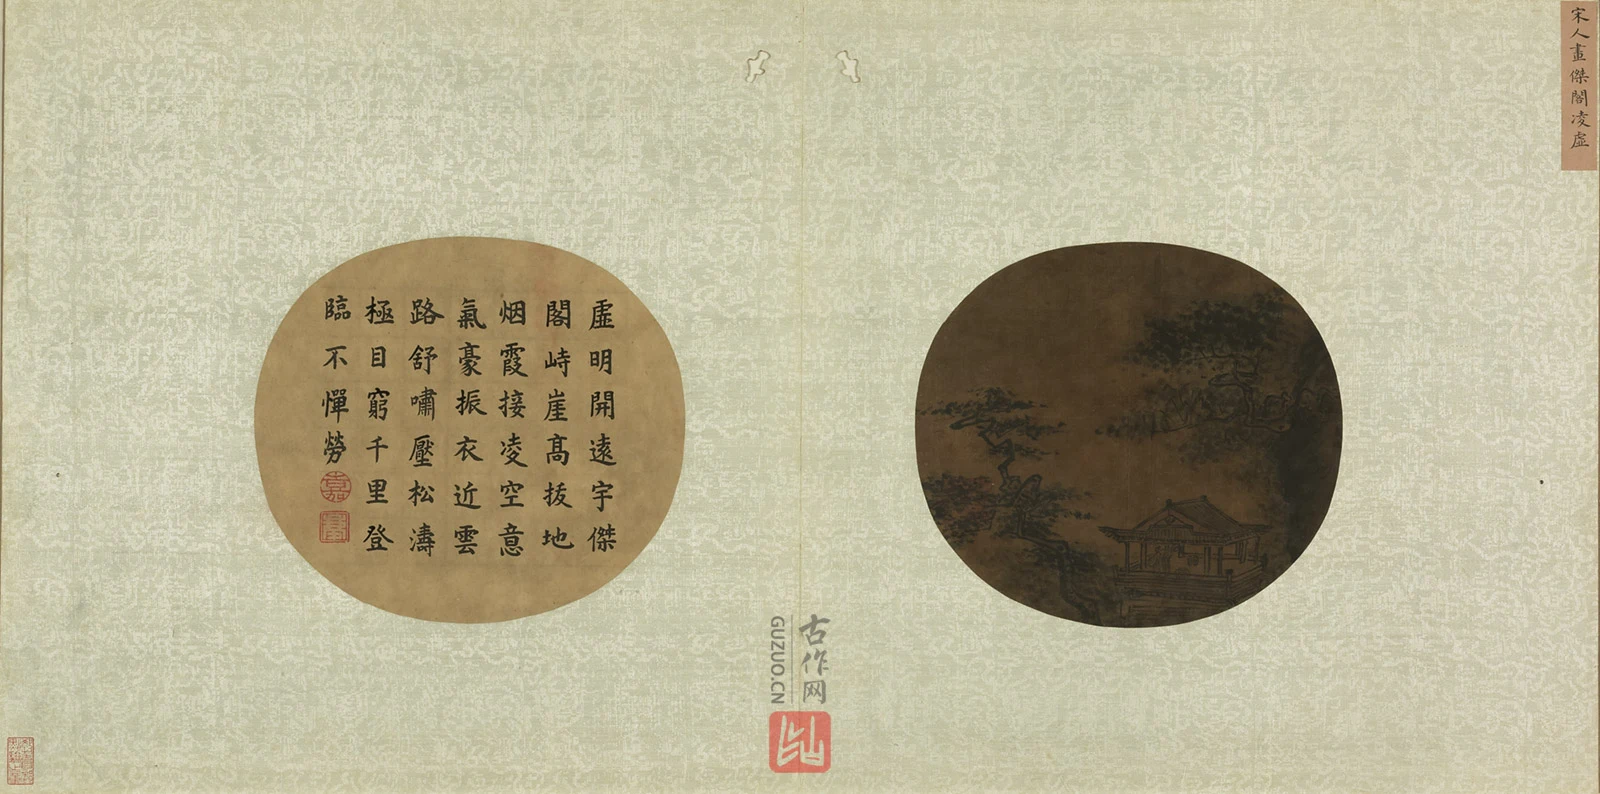 宋人畫傑閣凌虛
虛明開遠宇傑
閣峙崖高拔地
烟霞接凌空意
氣豪振衣近雲
路舒嘯壓松濤
極目窮千里登
臨不憚勞
嘉
古作网
GUZUO.CN